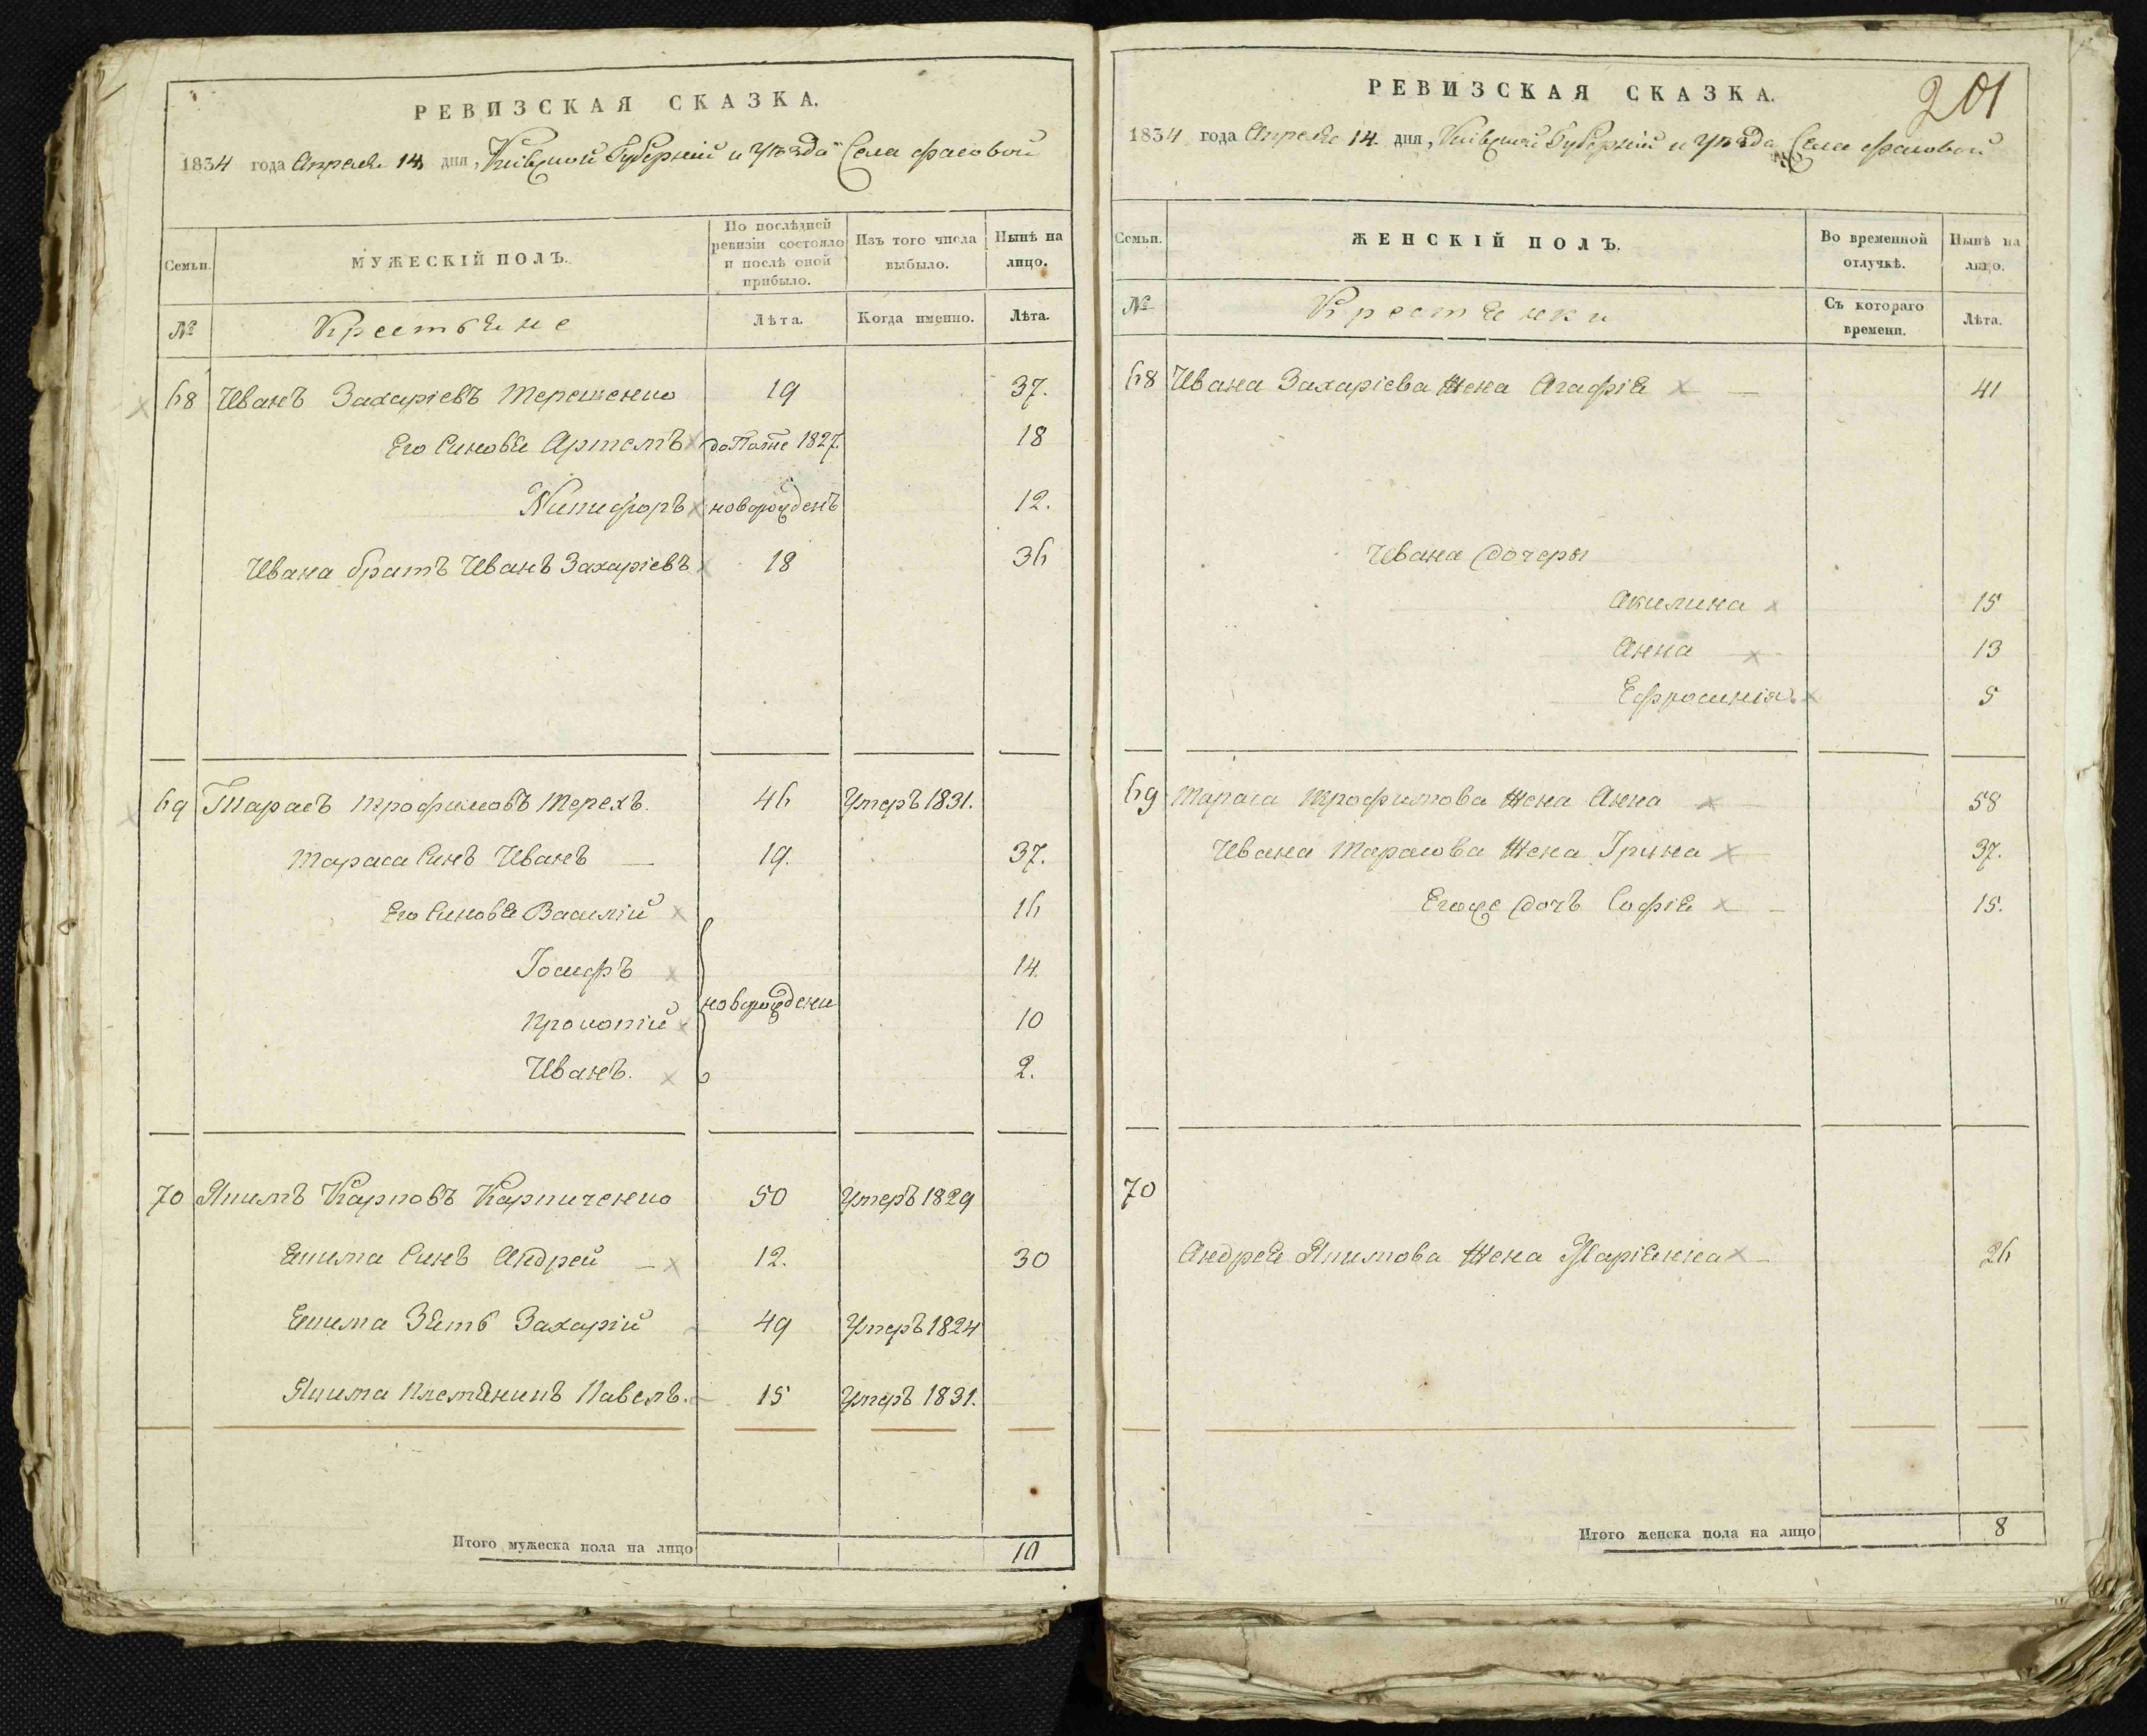 РЕВИЗСКАЯ СКАЗКА.
1834 года Апреля 14 дня, Киевской Губернїи и Уезда Села Фасовой
Семьи. МУЖЕСКІЙ ПОЛЪ. По послѣдней ревизіи состояло и послѣ оной прибыло. Изъ того числа выбыло. Нынѣ на лицо.
№ Крестьяне Лѣта. Когда именно. Лѣта.
68 Иванъ Захарїевъ Терещенко 19 37.
Его Синовя Артемъ 1827. 18
Никифоръ новорожденъ 12.
Ивана братъ Иванъ Захарїевъ 18 36
69 Тарасъ Трофимовъ Терехъ. 46 Умеръ 1831.
Тараса Синъ Иванъ 19. 37.
Его Синовя Василїй 16
Іосифъ 14.
новорождени
Прокопїй 10
Иванъ. 2.
70 Якимъ Карповъ Карпиченко 50 Умеръ 1829
Якима Синъ Андрей 12. 30
Якима Зять Захарїй 49 Умеръ 1824
Якима Племянникъ Павелъ. 15 Умеръ 1831.
Итого мужеска пола на лицо 10
201
РЕВИЗСКАЯ СКАЗКА.
1834 года Апреля 14. дня, Киевской Губернїи и Уезда Села Фасовой
Семьи. ЖЕНСКІЙ ПОЛЪ. Во временной отлучкѣ. Нынѣ на лицо.
№ Крестянки Съ котораго времени. Лѣта.
68 Ивана Захарїева жена Агафїя 41
Ивана дочеры
Акилина 15
Анна 13
Ефросинїя 5
69 Тараса Трофимова жена Анна 58
Ивана Тарасова жена Ірина 37.
Егоже дочъ Софїя 15.
70
Андрея Якимова жена Марїянна 26
Итого женска пола на лицо 8